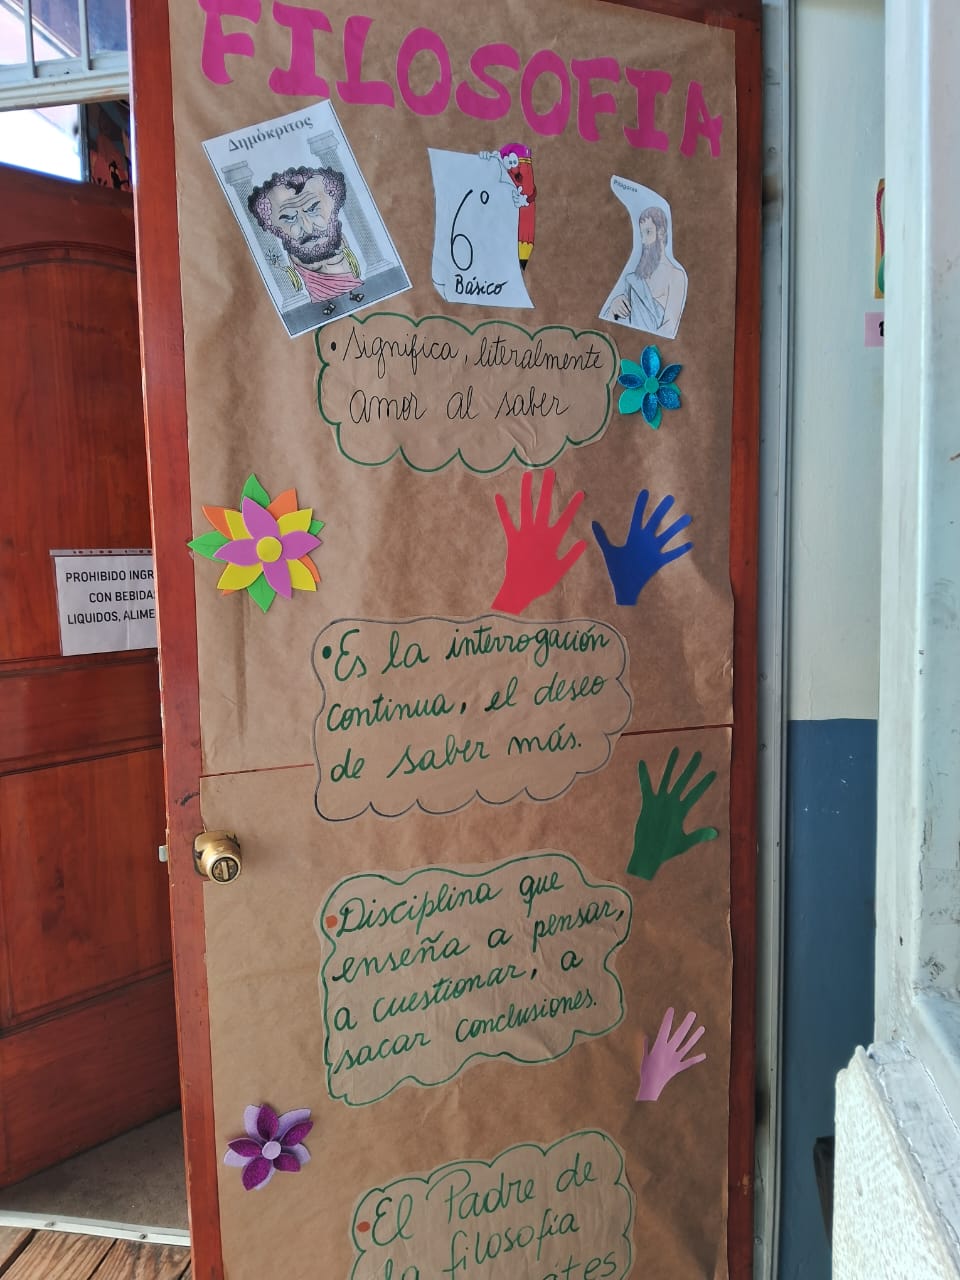 FILOSOFIA
Δημόκριτος
6°
Básico
Pitágoras
• Significa, literalmente
amor al saber
PROHIBIDO INGR
CON BEBIDA
LIQUIDOS, ALIME
• Es la interrogación
continua, el deseo
de saber más.
• Disciplina que
enseña a pensar,
a cuestionar, a
sacar conclusiones.
• El Padre de
la filosofía